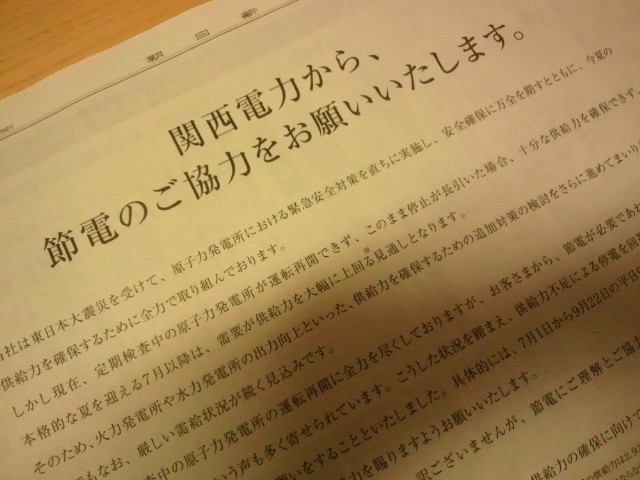 朝日新聞
関西電力から、
節電のご協力をお願いいたします。
当社は東日本大震災を受けて、原子力発電所における緊急安全対策を直ちに実施し、安全確保に万全を期すとともに、今夏の
供給力を確保するために全力で取り組んでおります。
しかし現在、定期検査中の原子力発電所が運転再開できず、このまま停止が長引いた場合、十分な供給力を確保できず、
本格的な夏を迎える7月以降は、需要が供給力を大幅に上回る見通しとなります。
そのため、火力発電所や水力発電所の出力向上といった、供給力を確保するための追加対策の検討をさらに進めてまいり
でもなお、厳しい需給状況が続く見込みです。
検査中の原子力発電所の運転再開に全力を尽くしておりますが、お客さまから、節電が必要であれ
いう声も多く寄せられています。こうした状況を踏まえ、供給力不足による停電を回避
いをすることといたしました。具体的には、7月1日から9月22日の平日
力を賜りますようお願いいたします。
訳ございませんが、節電にご理解とご協力
供給力の確保に向けて